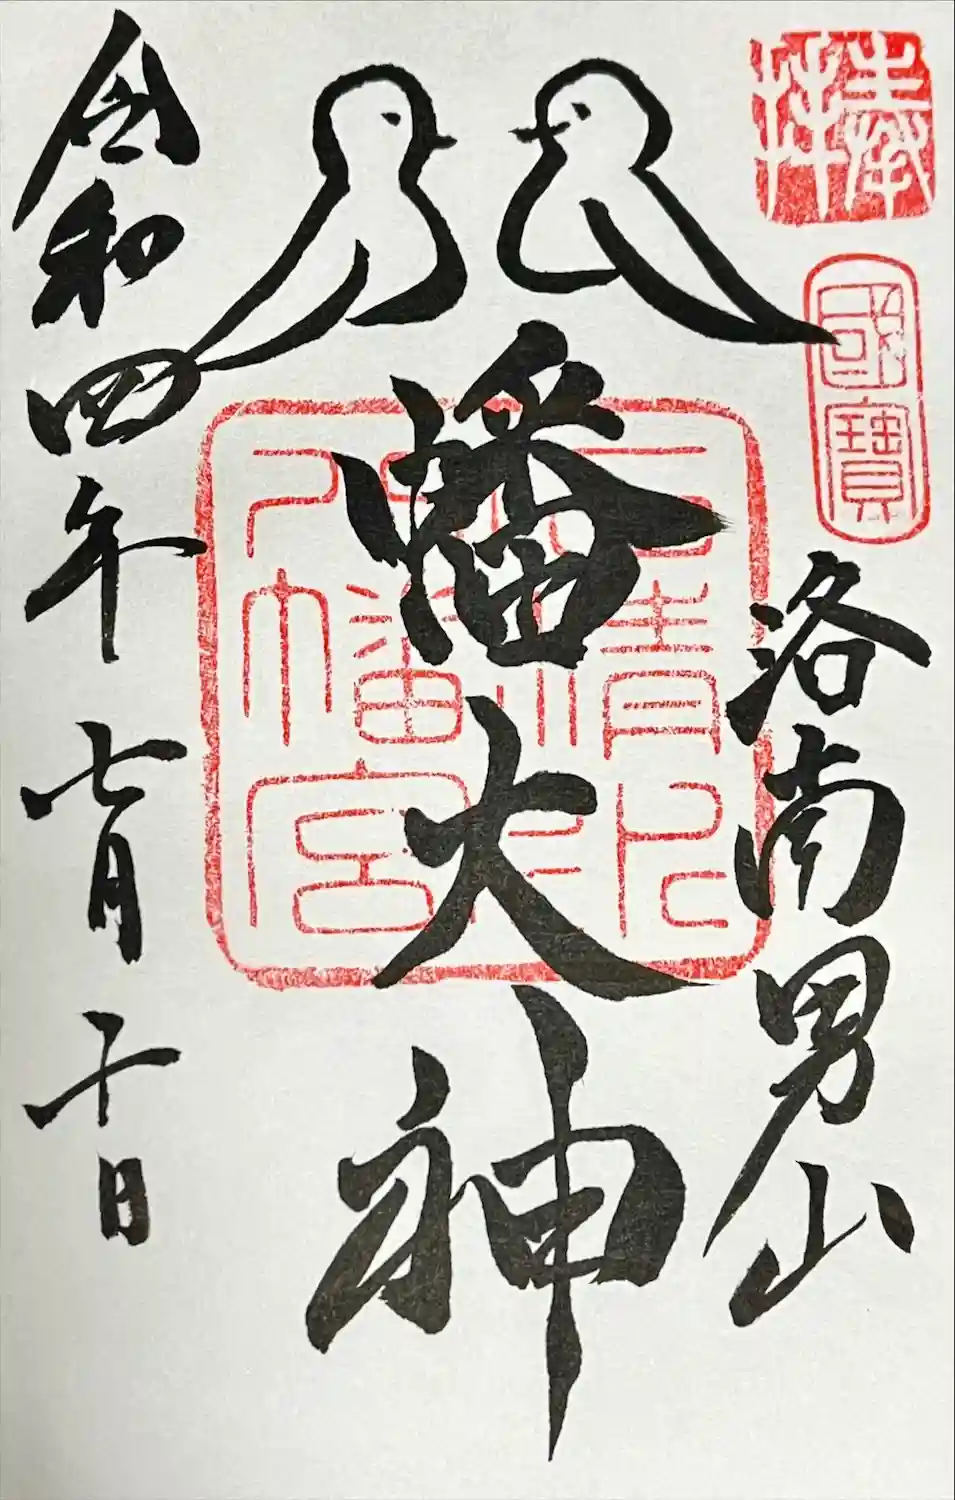 奉拝
國寶
洛南男山
八幡大神
石清水八幡宮
令和四年七月十日